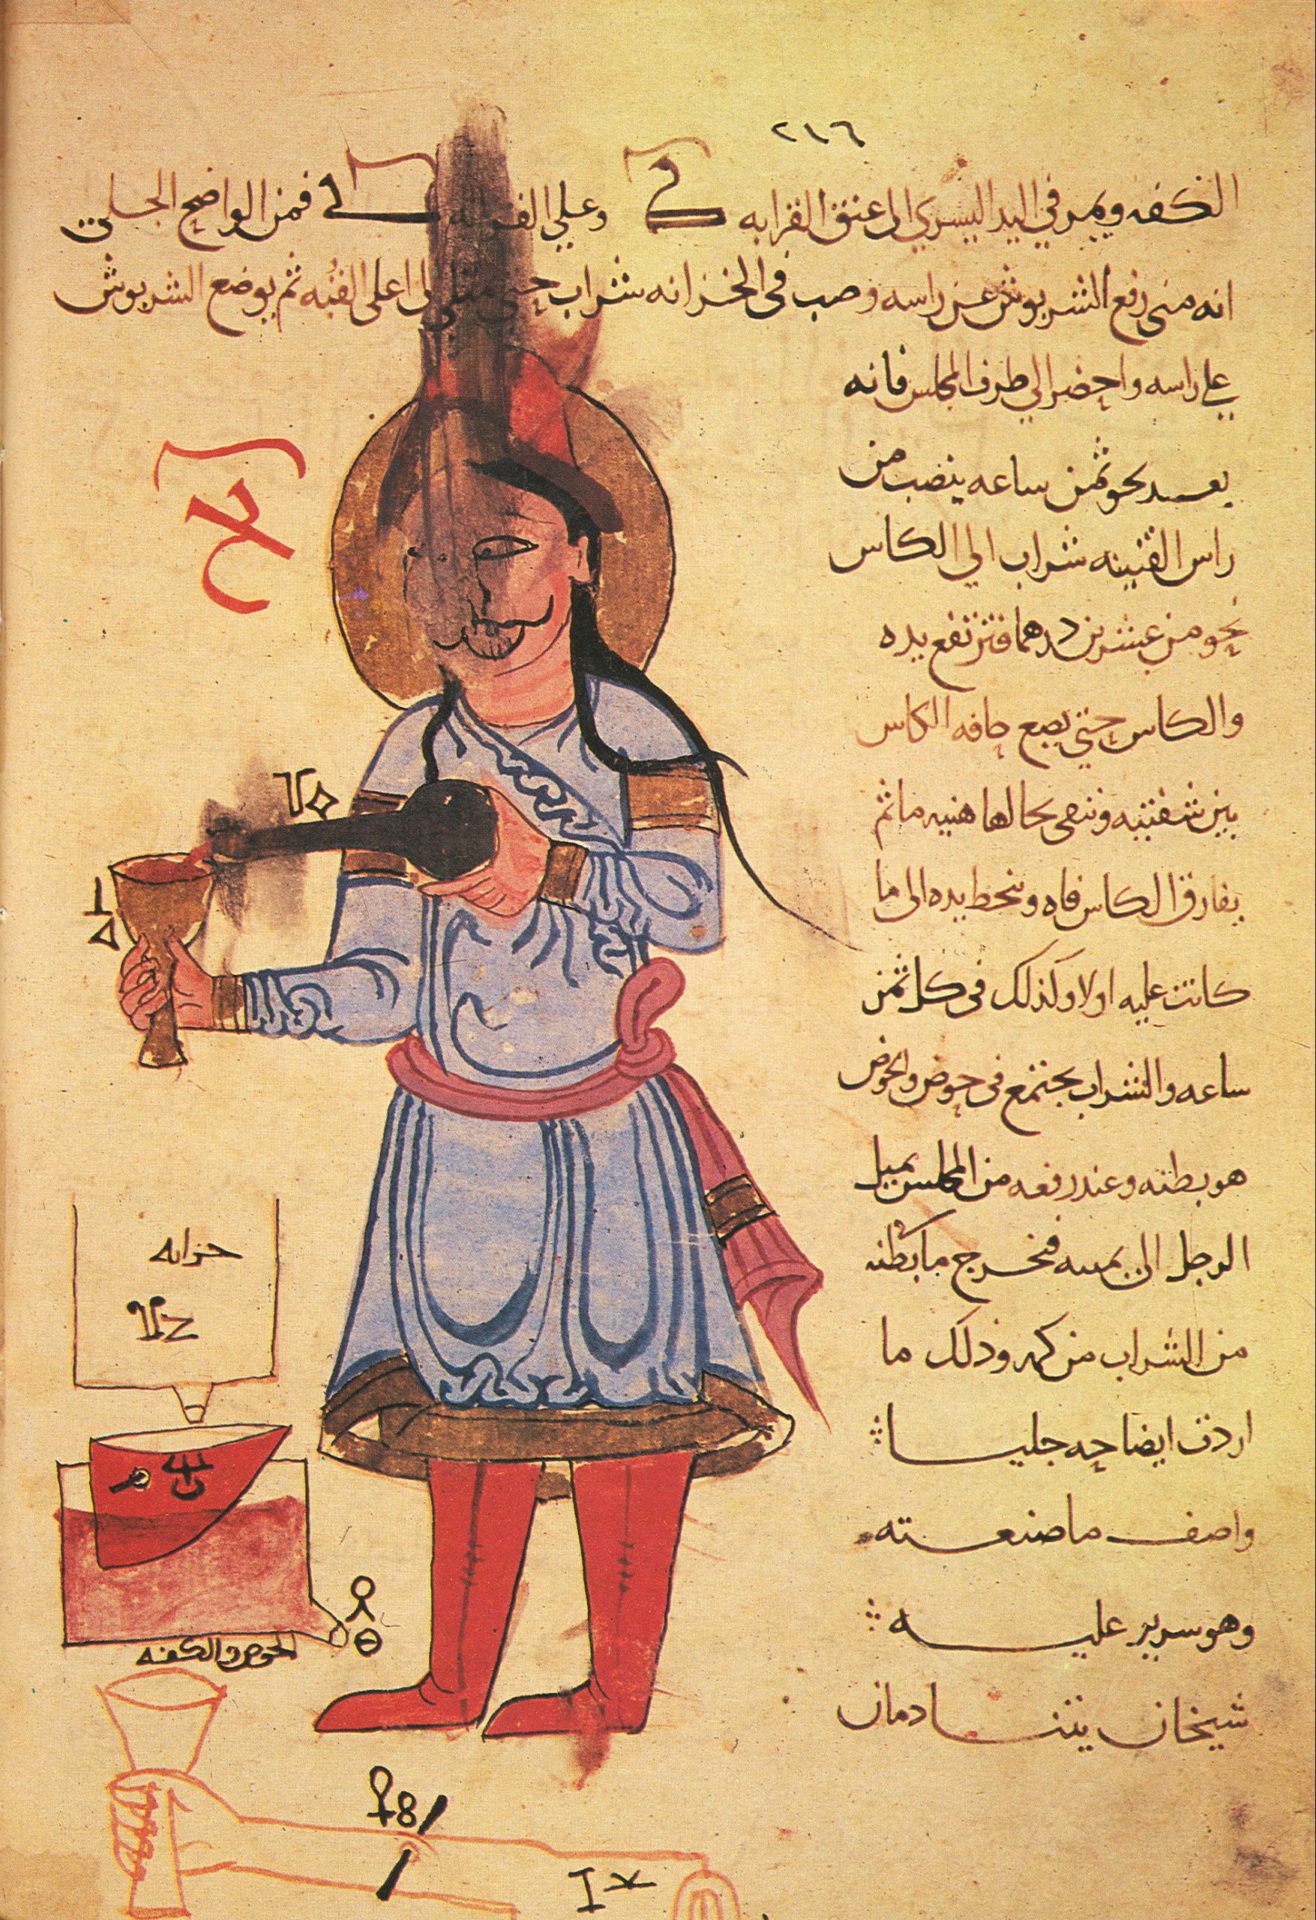 ٢١٦
الكفه ويمر في اليد اليسري الى عنق القرابه وعلي فمن الواضح الجلي
انه متى رفع الشربوش عن راسه وصب في الخزانه شراب حتى اعلى القبه ثم يوضع الشربوش
علي راسه واحضر الي طرف المجلس فانه
بعد نحو ثمن ساعه ينصب من
راس القنينه شراب الي الكاس
نحو من عشرين درهما فترتفع يده
والكاس حتى يضع حافه الكاس
بين شفتيه وتبقى بحالها هنيه ما ثم
يفارق الكاس فاه وتنحط يده الى ما
كانت عليه اولا وكذلك في كل ثمن
ساعه والشراب يجتمع في حوض والحوض
هو بطنه وعند رفعه من المجلس يميل
الرجل الى يمينه فيخرج ما بطنه
من الشراب من كمه وذلك ما
اردت ايضاحه جليا
واصف ما صنعته
وهو سرير عليه
شيخان يتنادمان
خزانه
الحوض والكفه